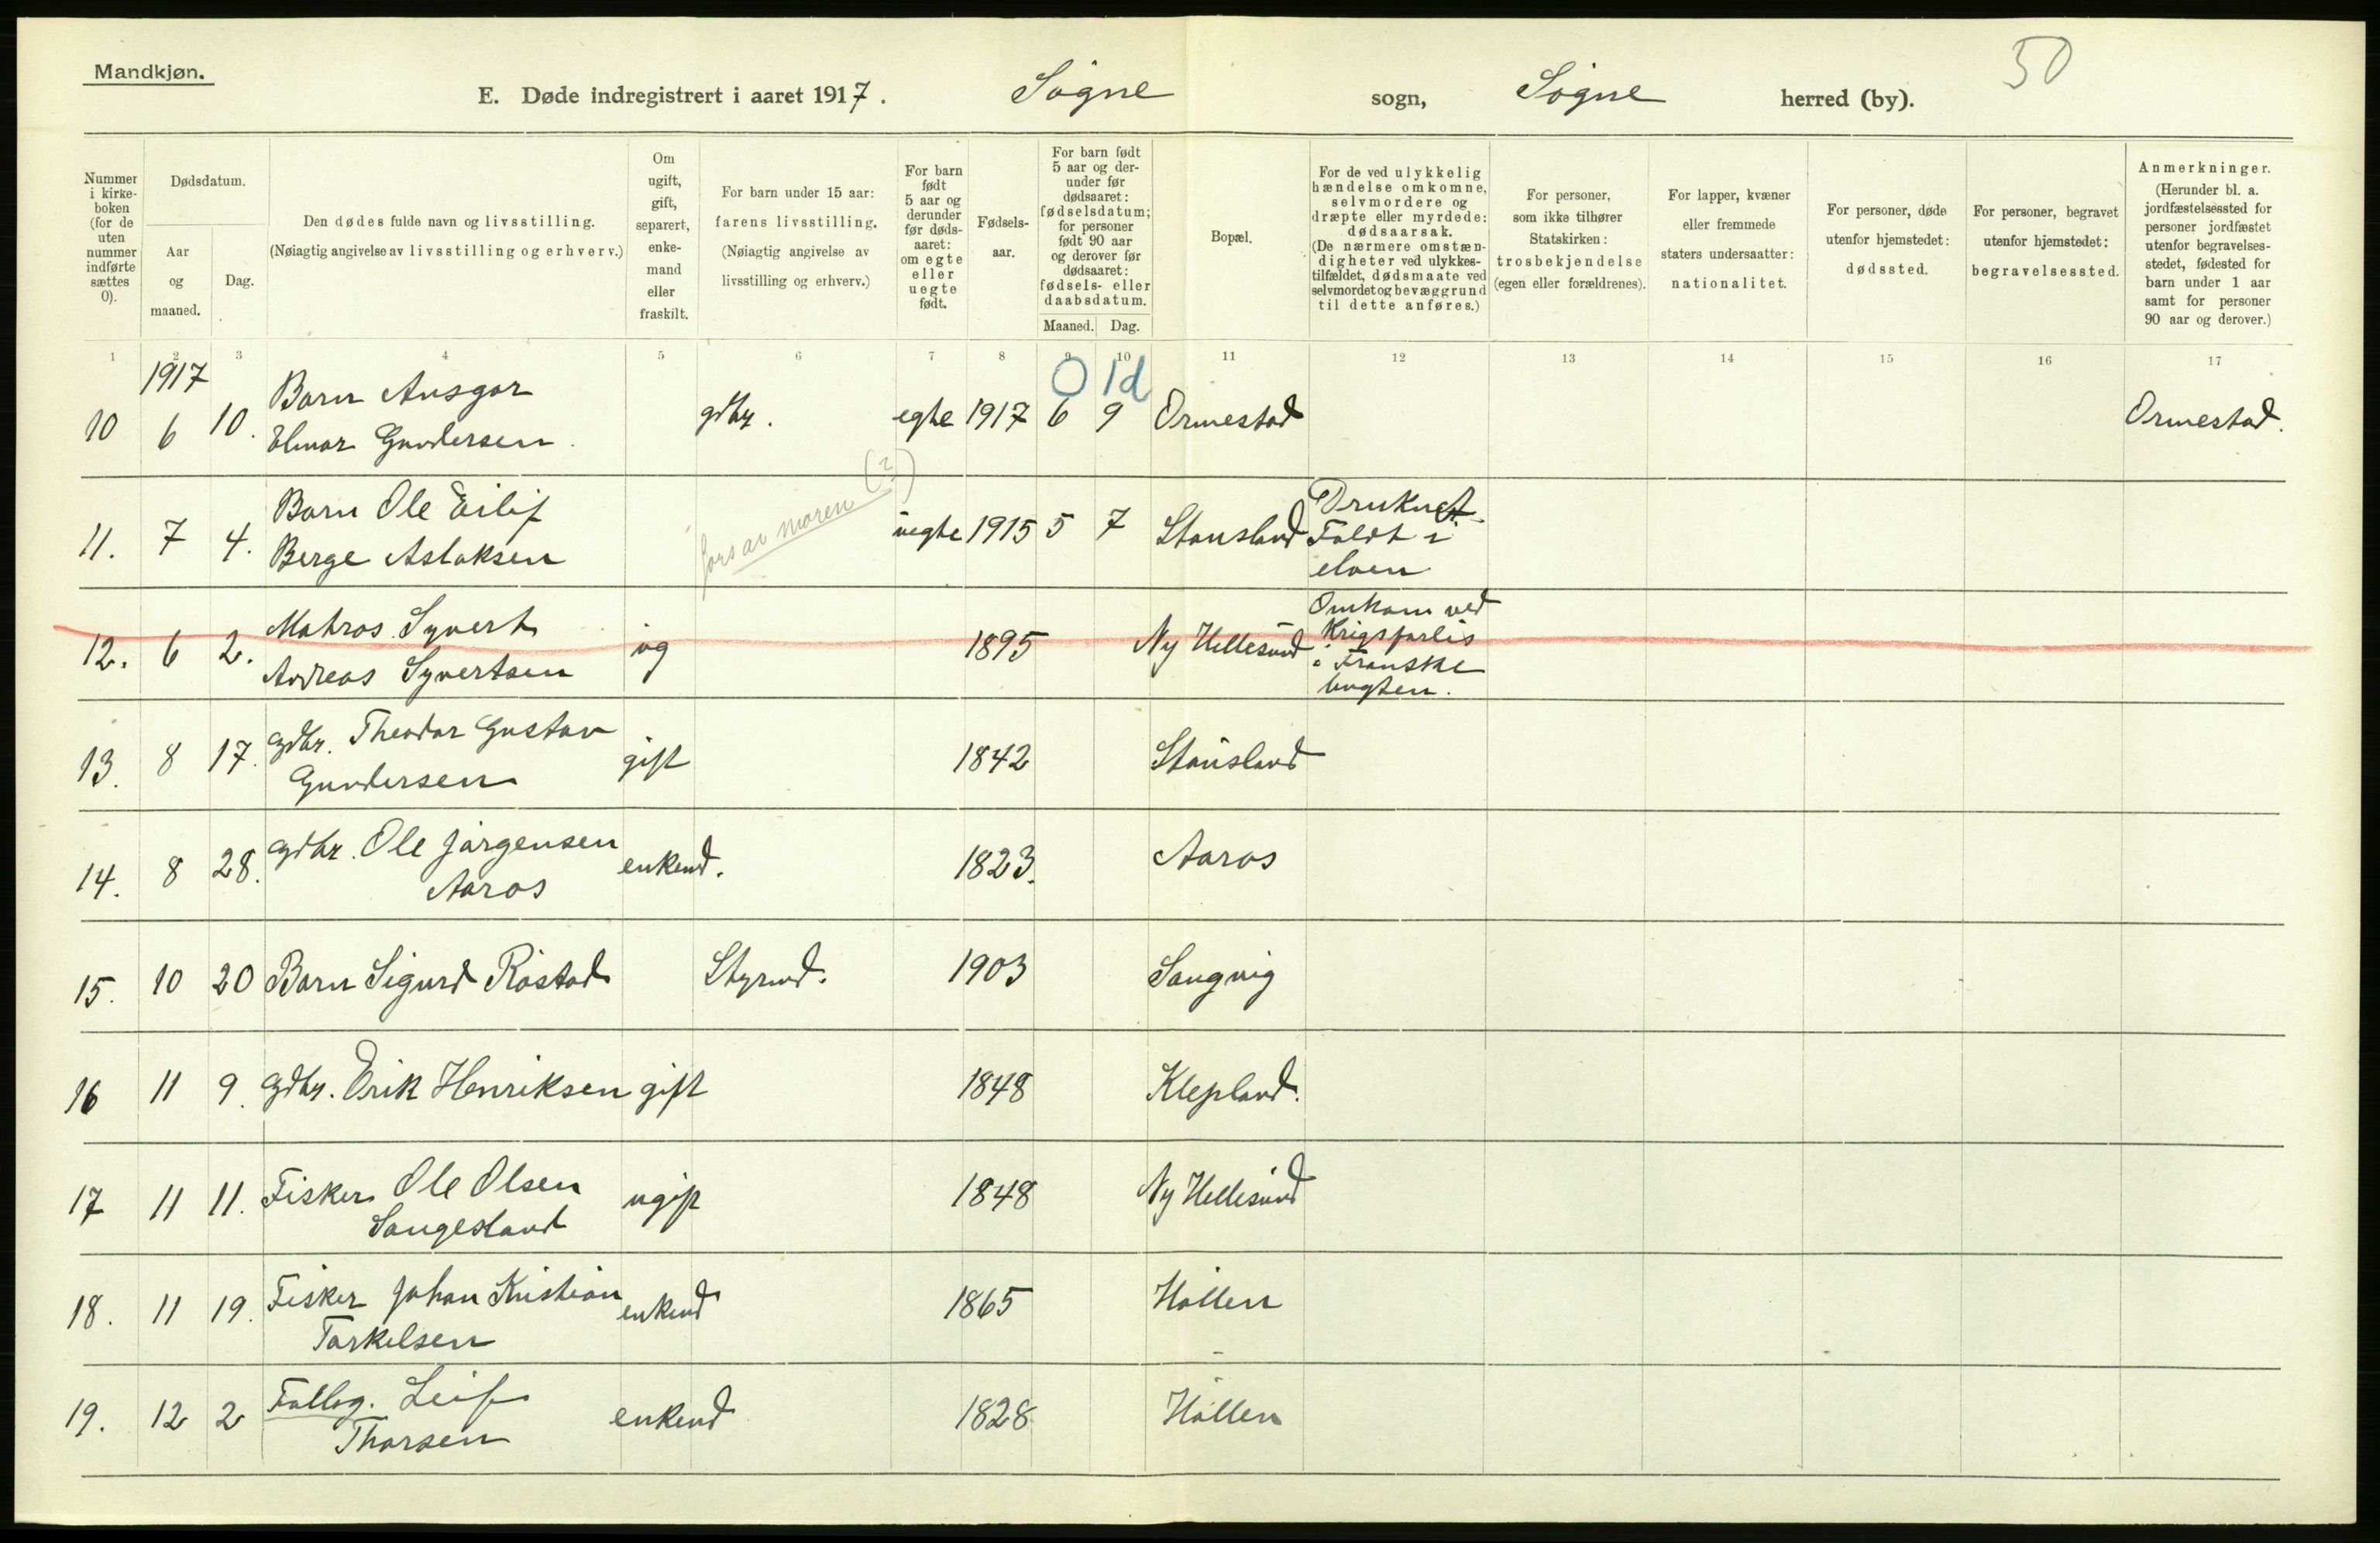 Mandkjøn.
50
E. Døde indregistrert i aaret 1917. Søgne sogn, Søgne herred (by).
Nummer i kirke-boken (for de uten nummer indførte sættes 0).
Dødsdatum.
Aar og maaned.
Dag.
Den dødes fulde navn og livsstilling.
(Nøiagtig angivelse av livsstilling og erhverv.)
Om ugift, gift, separert, enke-mand eller fraskilt.
For barn under 15 aar: farens livsstilling.
(Nøiagtig angivelse av livsstilling og erhverv.)
For barn født 5 aar og derunder før døds-aaret: om egte eller uegte født.
Fødsels-aar.
For barn født 5 aar og der-under før dødsaaret: fødselsdatum; for personer født 90 aar og derover før dødsaaret: fødsels- eller daabsdatum.
Maaned. Dag.
Bopæl.
For de ved ulykkelig hændelse omkomne, selvmordere og dræpte eller myrdede: dødsaarsak.
(De nærmere omstæn-digheter ved ulykkes-tilfældet, dødsmaate ved selvmordet og bevæggrund til dette anføres.)
For personer, som ikke tilhører Statskirken: trosbekjendelse (egen eller forældrenes).
For lapper, kvæner eller fremmede staters undersaatter: nationalitet.
For personer, døde utenfor hjemstedet: dødssted.
For personer, begravet utenfor hjemstedet: begravelsessted.
Anmerkninger.
(Herunder bl. a. jordfæstelsessted for personer jordfæstet utenfor begravelses-stedet, fødested for barn under 1 aar samt for personer 90 aar og derover.)
1 2 3 4 5 6 7 8 9 10 11 12 13 14 15 16 17
1917
0 1d
10 6 10. Barn Ansgar
Elmar Gundersen. gdbr. egte 1917 6 9 Ormestad Ormestad.
11. 7 4. Barn Ole Eilif
Berge Aslaksen fors av moren (?) uegte 1915 5 7 Stausland Druknet
Faldt i
elven
12. 6 2. Matros Syvert
Andreas Syvertsen ug 1895 Ny Hellesund Omkom ved
Krigsforlis
i Franske
bugten.
13. 8 17. gdbr. Theodor Gustav
Gundersen gift 1842 Stausland
14. 8 28. gdbr. Ole Jørgensen
Aaros enkemd. 1823. Aaros
15. 10 20 Barn Sigurd Røstad Styrmd. 1903 Langvig
16 11 9. gdbr. Erik Henriksen gift 1848 Klepland.
17 11 11. Fisker Ole Olsen
Langeland ugift 1848 Ny Hellesund
18. 11 19. Fisker Johan Kristian
Torkelsen enkemd 1865 Høllen
19. 12 2 Fattig. Leif
Thorsen enkemd 1828 Høllen